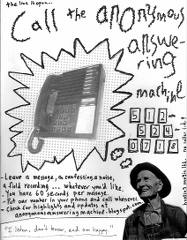 the line is open...
Call the anonymous
answe-
ring
machine
512-
524-
0716
- Leave a message, a confessing a noise,
a field recording ... whatever you'd like.
- You have 60 seconds per message.
- Put our number in your phone and call whenever.
- Check for highlights and updates at
anonymousansweringmachine.blogspot.com
"I listen, don't know, and am happy"